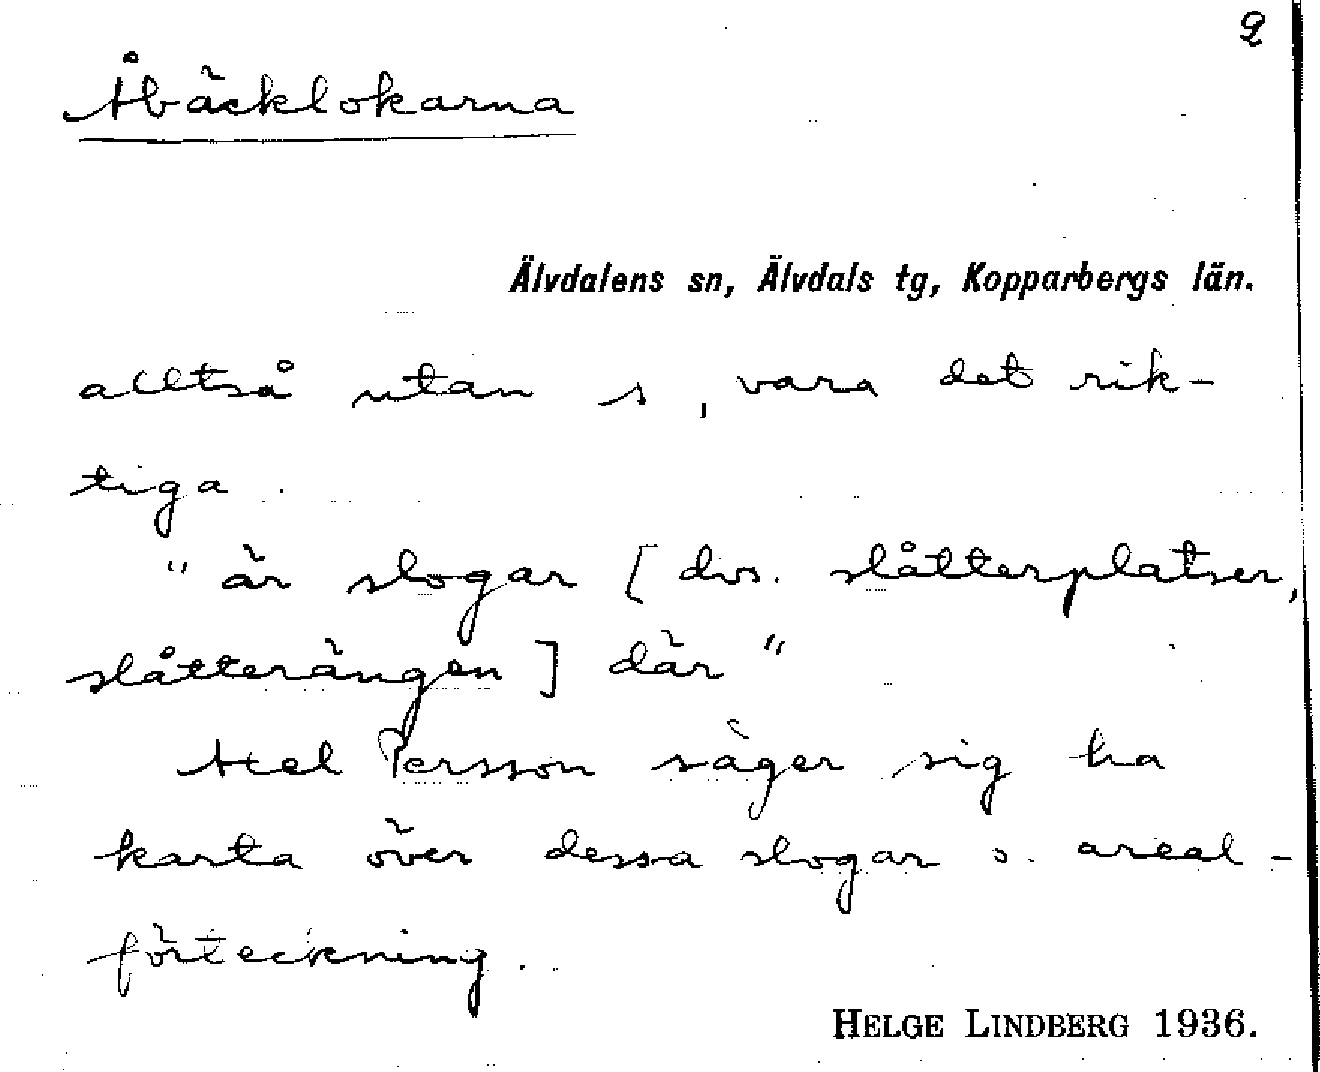 2
Åbäcklokarna
Älvdalens sn, Älvdals tg, Kopparbergs län.
alltså utan s, vara det rik-
tiga.
"är slogar [dvs. slåtterplatser,
slåtterängen] där"
Axel Persson säger sig ha
karta över dessa slogar o. areal-
förteckning.
HELGE LINDBERG 1936.